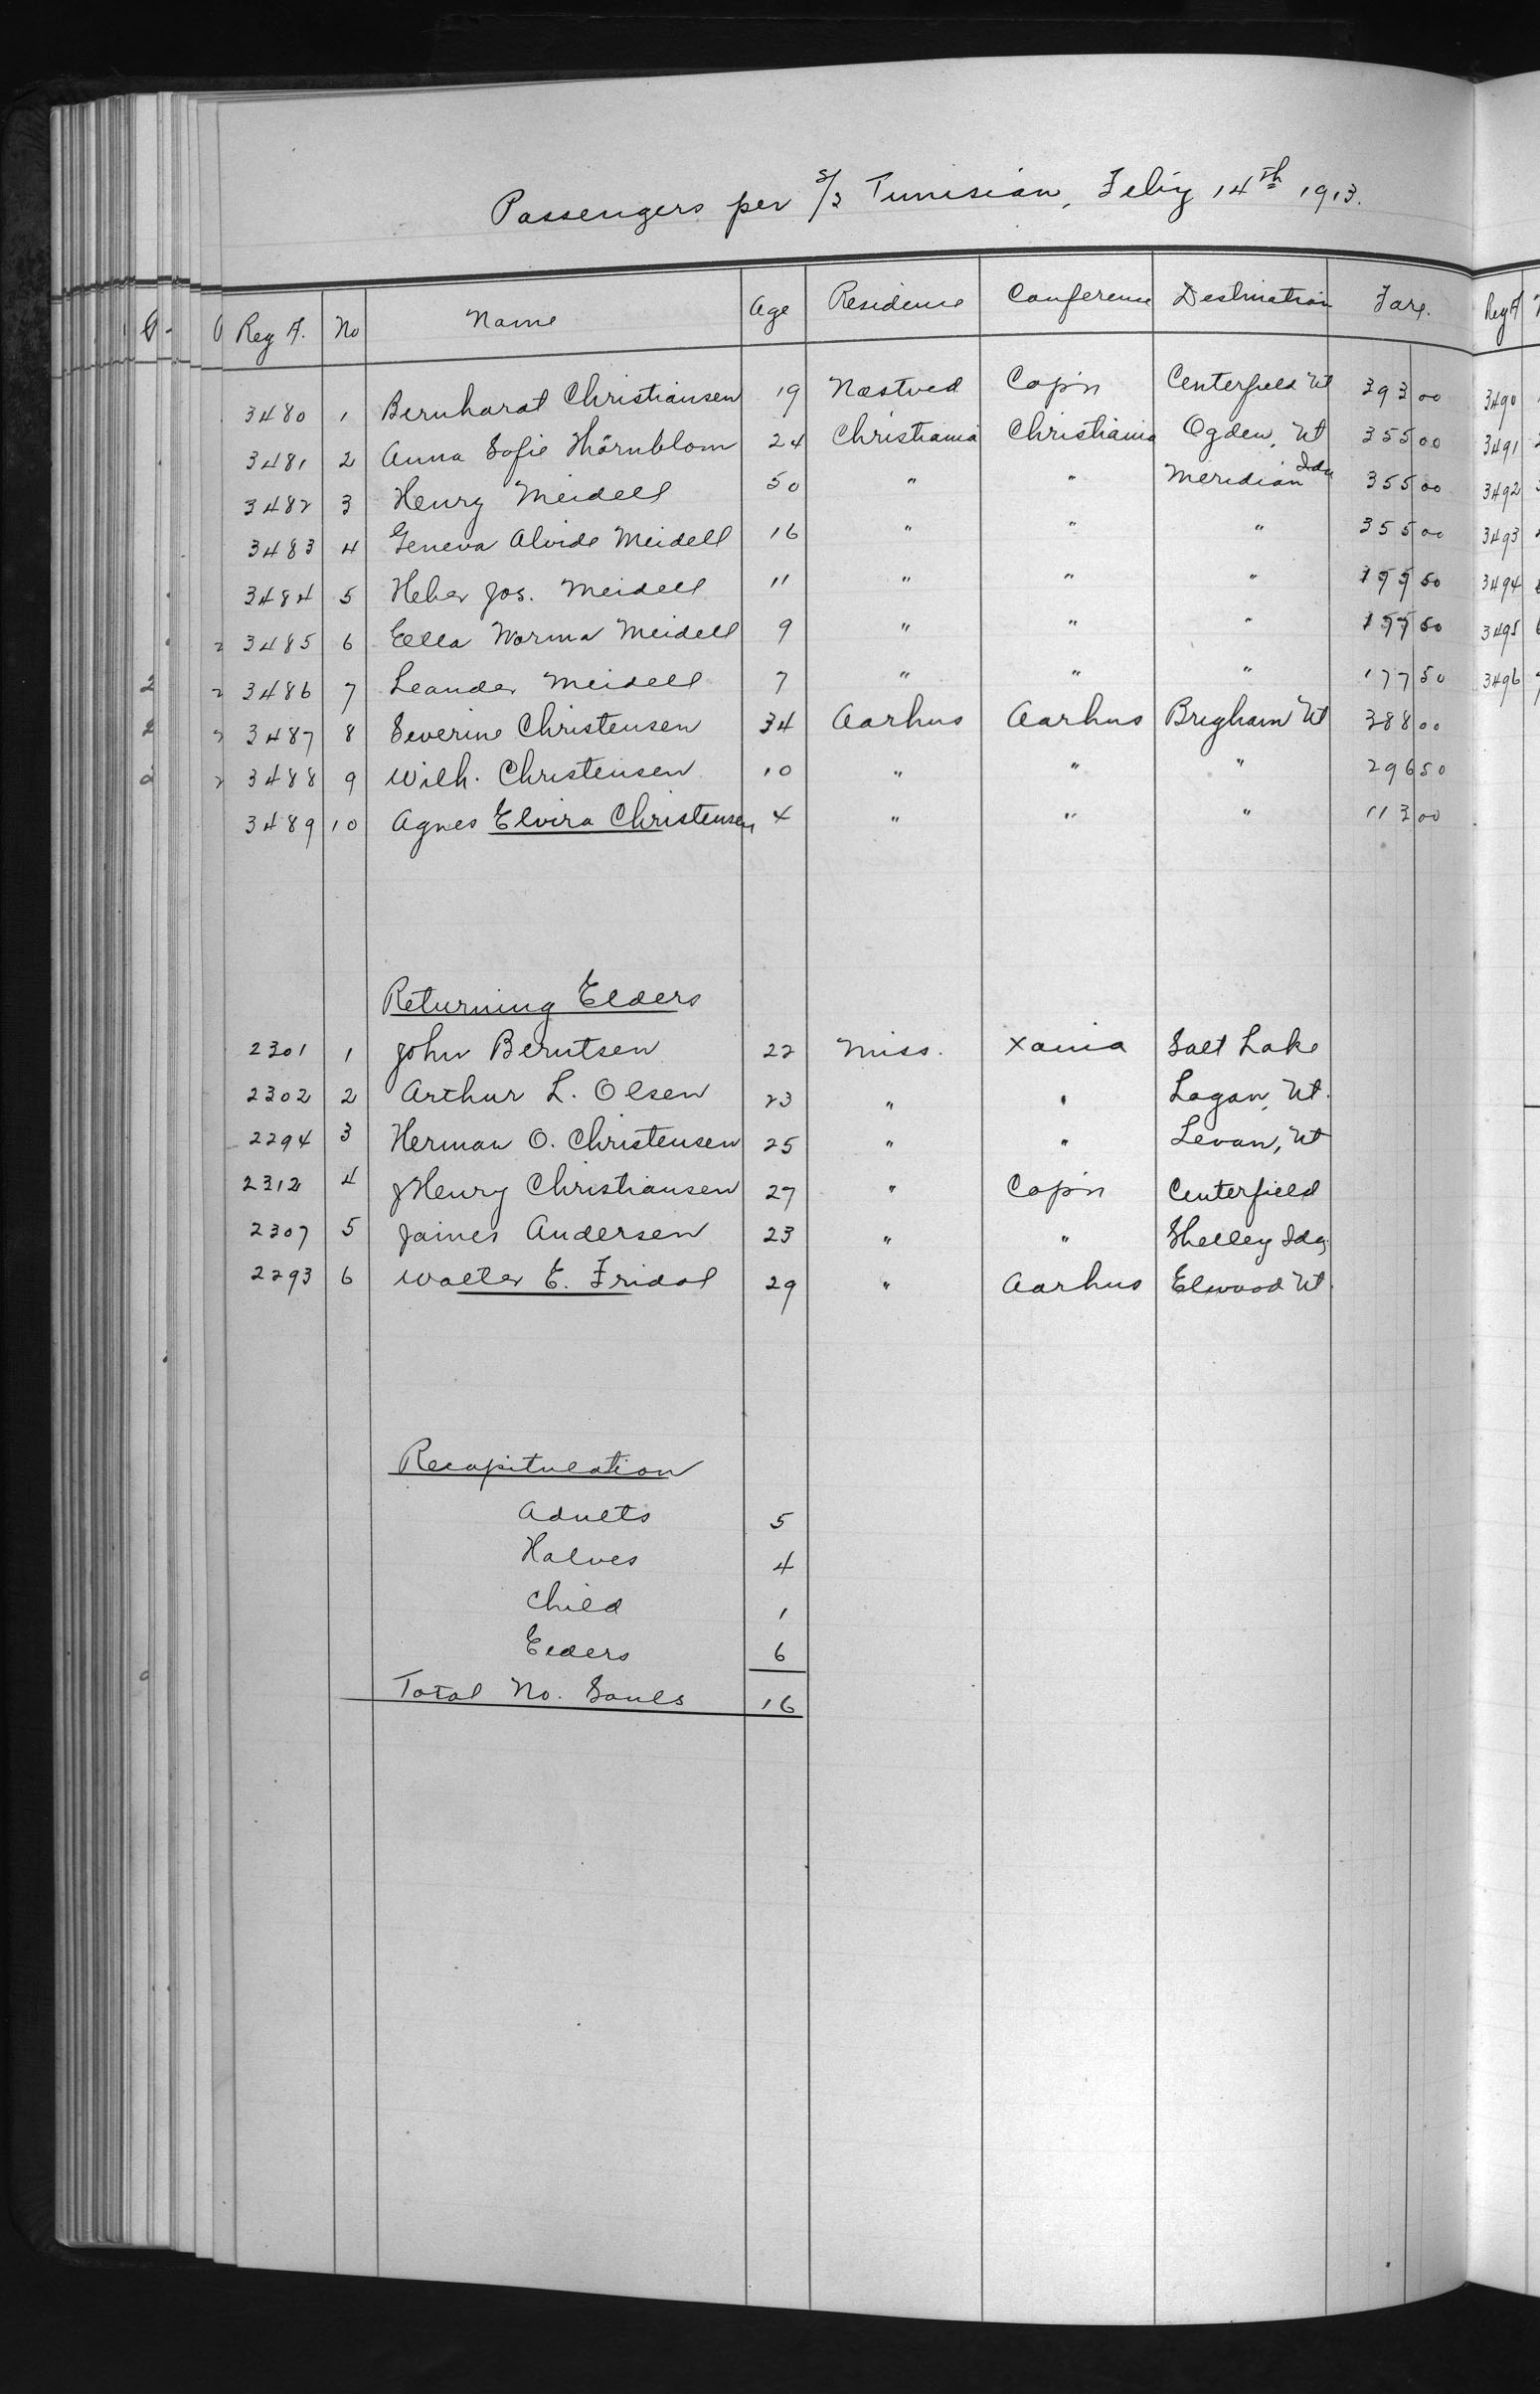 Passengers per S/S Tunisian, Feb'y 14th 1913.
Reg A. No Name Age Residence Conference Destination Fare.
3480 1 Bernhardt Christiansen 19 Næstved Cop'n Centerfield Ut 393 00
3481 2 Anna Sofie Thörnblom 24 Christiania Christiania Ogden, Ut 355 00
3482 3 Henry Meidell 50 " " Meridian Ida 355 00
3483 4 Geneva Alvide Meidell 16 " " " 355 00
3484 5 Heber Jos. Meidell 11 " " " 50
3485 6 Ella Norma Meidell 9 " " " 50
3486 7 Leander Meidell 7 " " " 177 50
3487 8 Severine Christensen 34 Aarhus Aarhus Brigham Ut 388 00
3488 9 Wilh. Christensen 10 " " " 296 50
3489 10 Agnes Elvira Christensen 4 " " " 113 00
Returning Elders
2301 1 John Berntsen 22 Miss. Xania Salt Lake
2302 2 Arthur L. Olsen 23 " " Logan, Ut.
2294 3 Herman O. Christensen 25 " " Levan, Ut
2312 4 Henry Christiansen 27 " Cop'n Centerfield
2307 5 James Andersen 23 " " Shelley Ida
2293 6 Walter E. Fridal 29 " Aarhus Elwood Ut.
Recapitulation
Adults 5
Halves 4
Child 1
Elders 6
Total No. Souls 16
Reg A
3490
3491
3492
3493
3494
3495
3496